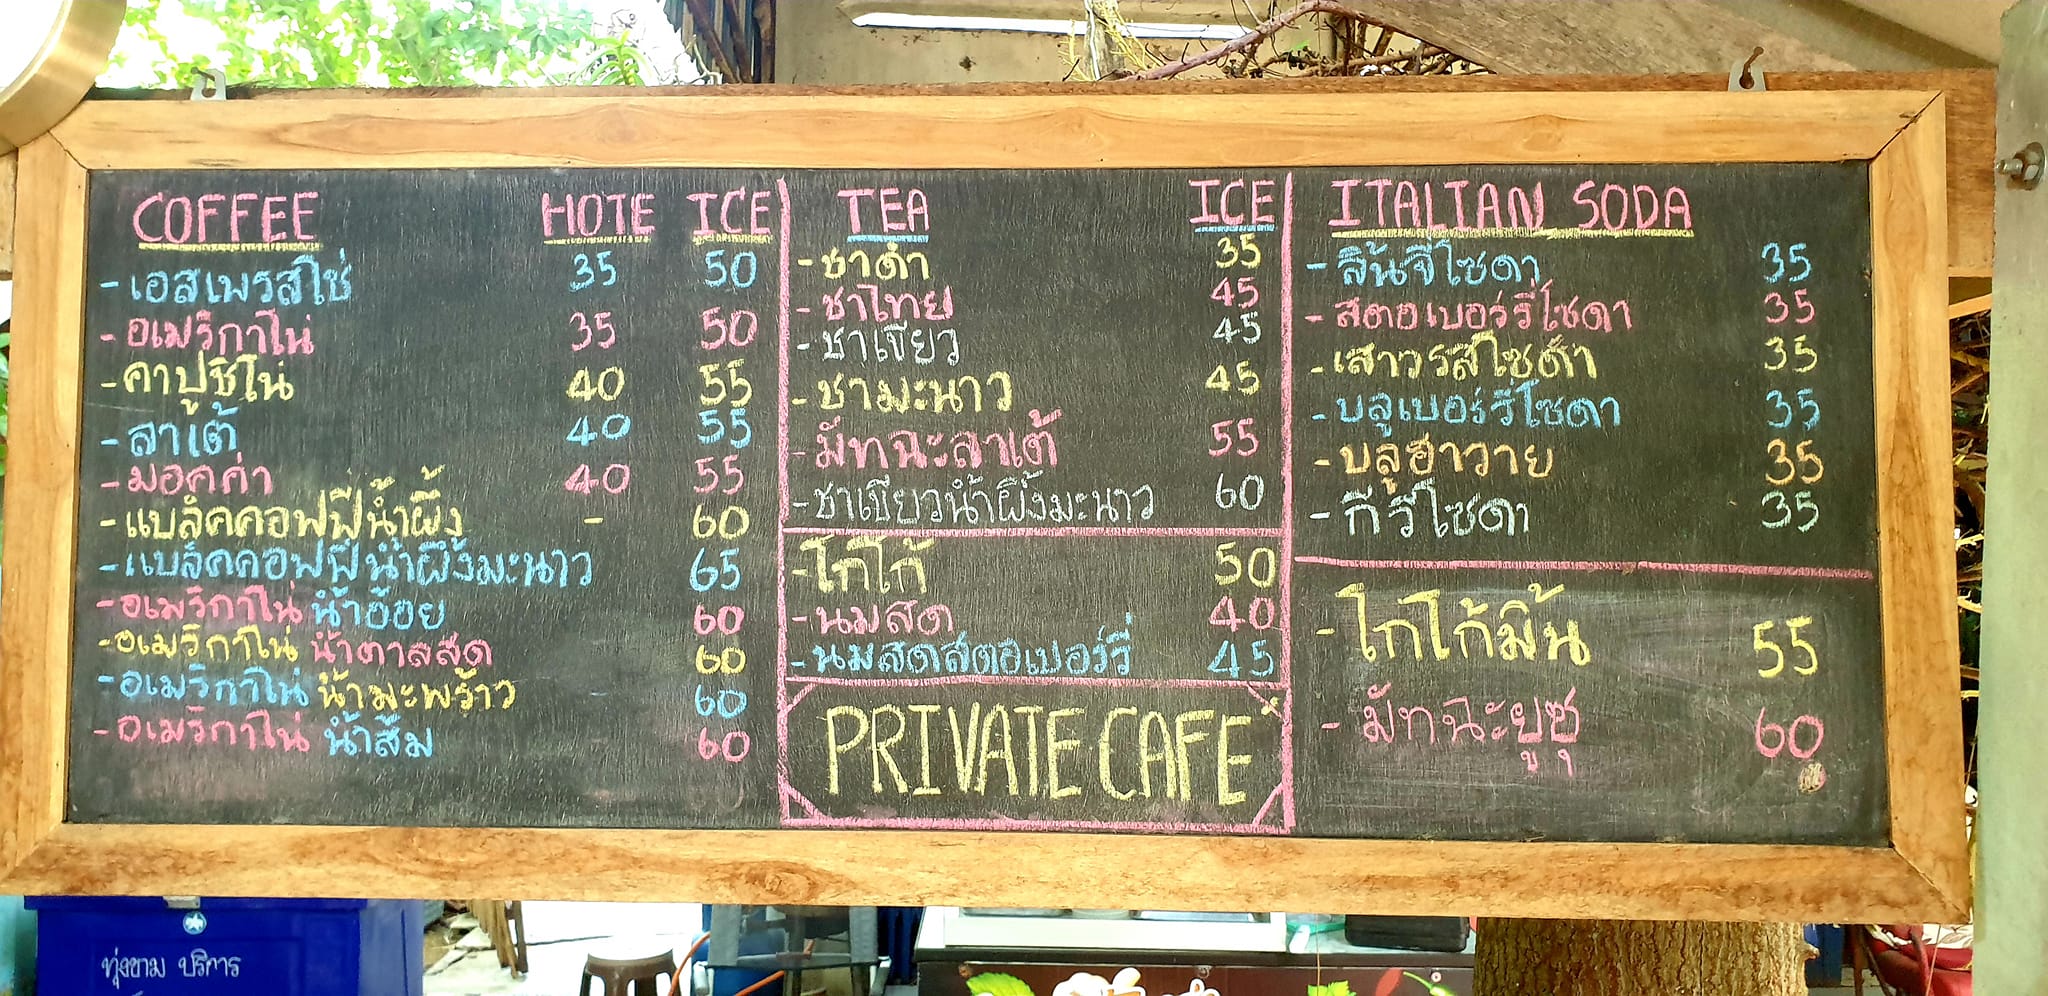 COFFEE HOTE ICE
- เอสเพรสโซ่ 35 50
- อเมริกาโน่ 35 50
- คาปูชิโน่ 40 55
- ลาเต้ 40 55
- มอคค่า 40 55
- แบล็คคอฟฟี่น้ำผึ้ง - 60
- แบล็คคอฟฟี่น้ำผึ้งมะนาว 65
- อเมริกาโน่ น้ำอ้อย 60
- อเมริกาโน่ น้ำตาลสด 60
- อเมริกาโน่ น้ำมะพร้าว - 60
- อเมริกาโน่ น้ำส้ม 60
TEA ICE
- ชาดำ 35
- ชาไทย 45
- ชาเขียว 45
- ชามะนาว 45
- มัทฉะลาเต้ 55
- ชาเขียวน้ำผึ้งมะนาว 60
- โกโก้ 50
- นมสด 40
- นมสดสตอเบอร์รี่ 45
PRIVATE CAFE
ITALIAN SODA
- ลิ้นจี่โซดา 35
- สตอเบอร์รี่โซดา 35
- เสาวรสโซดา 35
- บลูเบอร์รี่โซดา 35
- บลูฮาวาย 35
- กีวีโซดา 35
- โกโก้มิ้น 55
- มัทฉะยูซุ 60
ทุ่งขาม บริการ